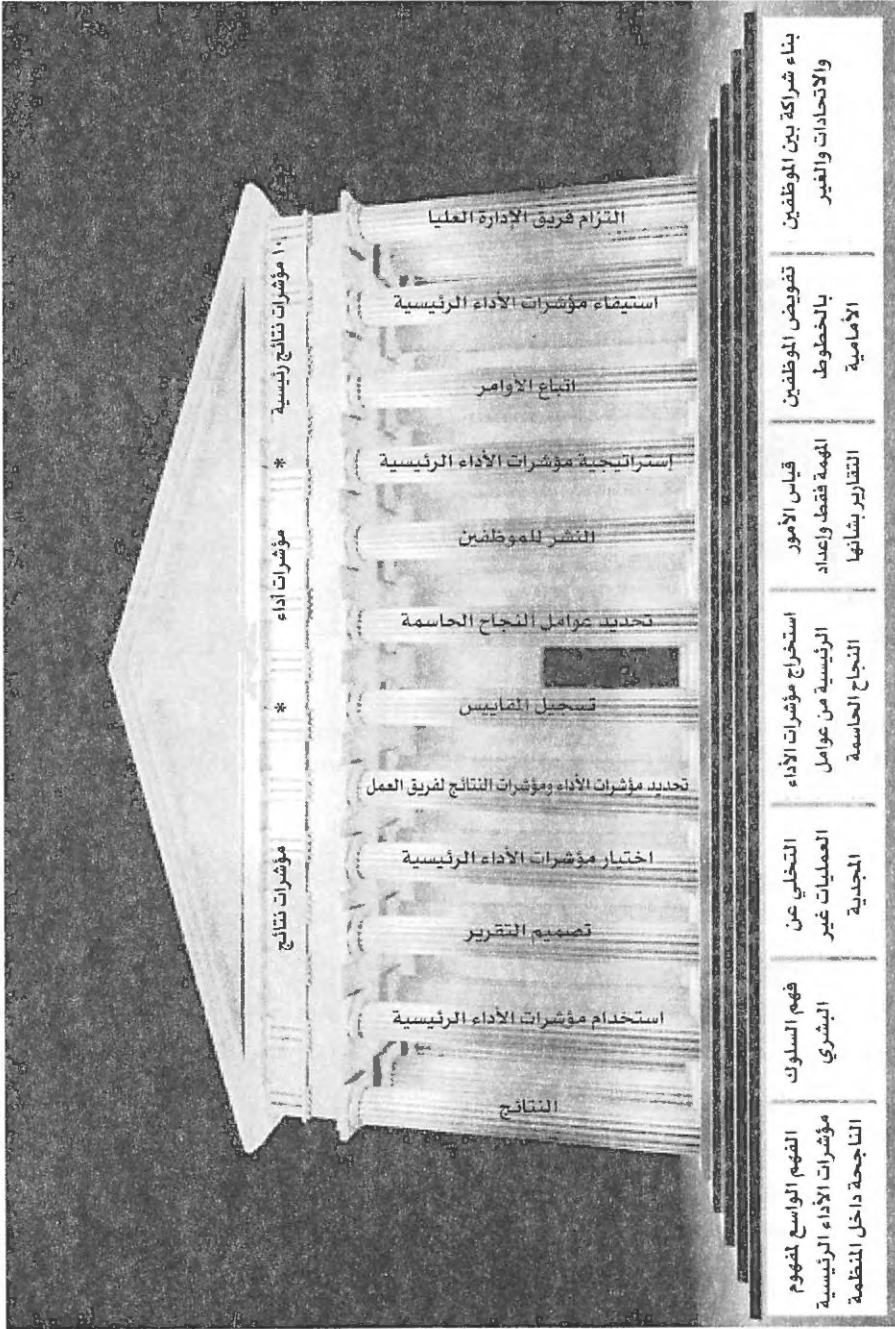 ١٠ مؤشرات نتائج رئيسية * مؤشرات أداء * مؤشرات نتائج
التزام فريق الإدارة العليا
استيفاء مؤشرات الأداء الرئيسية
اتباع الأوامر
إستراتيجية مؤشرات الأداء الرئيسية
النشر للموظفين
تحديد عوامل النجاح الحاسمة
تسجيل المقاييس
تحديد مؤشرات الأداء ومؤشرات النتائج لفريق العمل
اختيار مؤشرات الأداء الرئيسية
تصميم التقرير
استخدام مؤشرات الأداء الرئيسية
النتائج
بناء شراكة بين الموظفين
والاتحادات والغير
تفويض الموظفين
بالخطوط
الأمامية
قياس الأمور
المهمة فقط وإعداد
التقارير بشأنها
استخراج مؤشرات الأداء
الرئيسية من عوامل
النجاح الحاسمة
التخلي عن
العمليات غير
المجدية
فهم السلوك
البشري
الفهم الواسع لمفهوم
مؤشرات الأداء الرئيسية
الناجحة داخل المنظمة